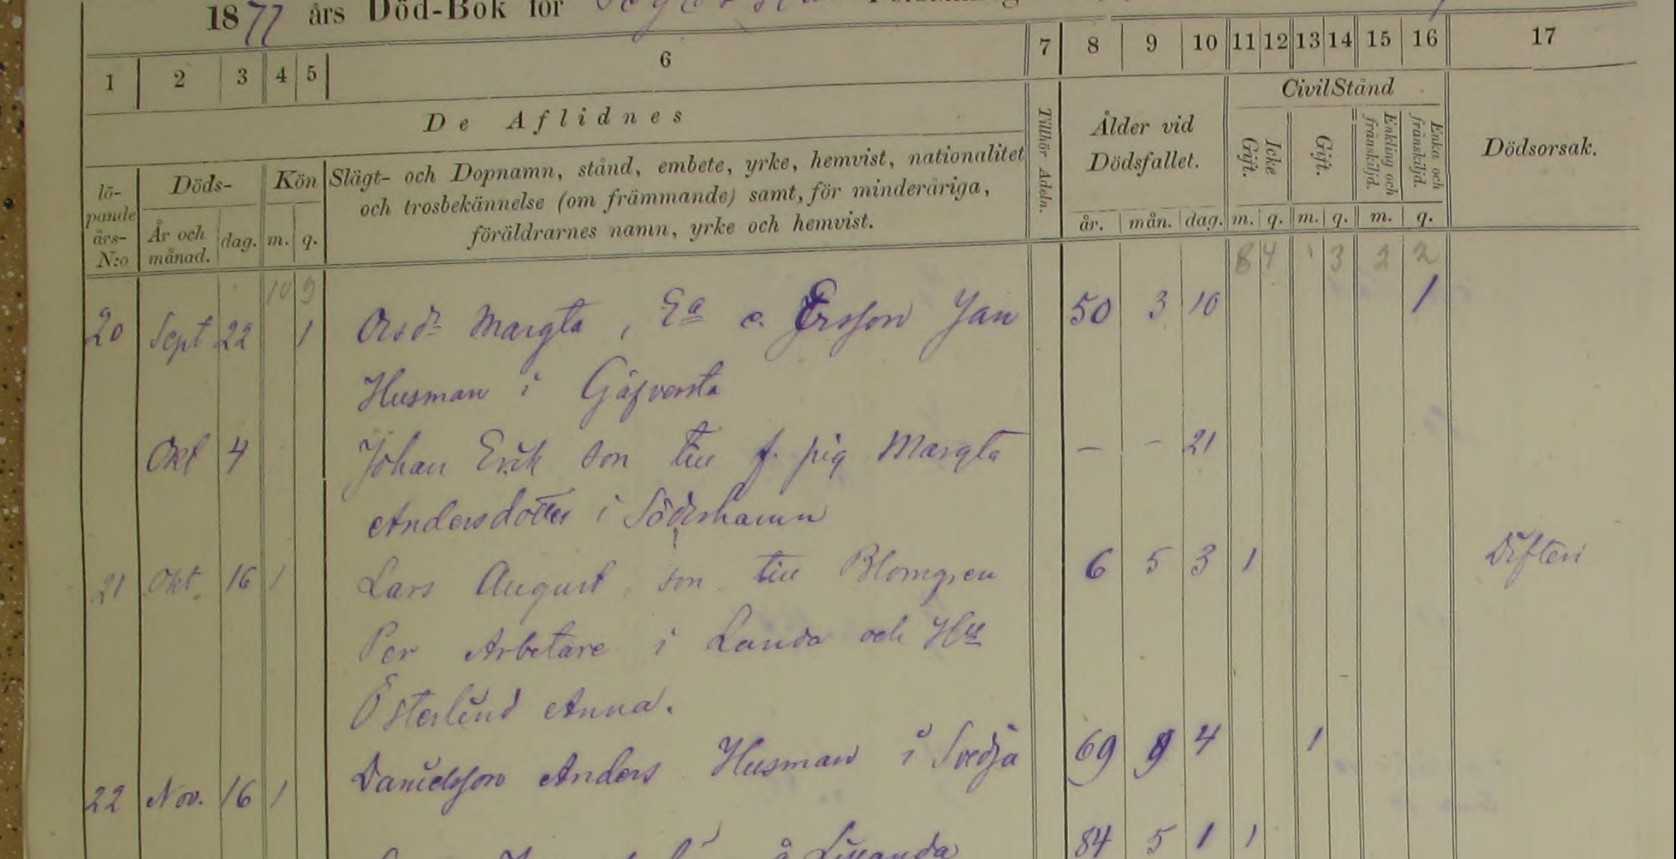 1877 års Död-Bok för
1 2 3 4 5 6 7 8 9 10 11 12 13 14 15 16 17
De Aflidnes
Tillhör Adeln.
Ålder vid Dödsfallet.
CivilStånd
Dödsorsak.
löpande års-N:o
Döds-
Kön
Slägt- och Dopnamn, stånd, embete, yrke, hemvist, nationalitet
och trosbekännelse (om främmande) samt, för minderåriga,
föräldrarnes namn, yrke och hemvist.
Icke Gift.
Gift.
Enkling och frånskiljd.
Enka och frånskiljd.
År och månad. dag. m. q. år. mån. dag. m. q. m. q. m. q.
10 9 8 4 1 3 2 2
20 Sept 22 1 Orsdr Margta, Ea e. Ersson Jan 50 3 10 1
Husman i Gäfversta
Okt 4 Johan Erik son till f. pig Margta — — 21
Andersdotter i Söderhamn
21 Okt. 16 1 Lars August son till Blomgren 6 5 3 1 Difteri
Per Arbetare i Landa och Hu
Österlund Anna.
22 Nov. 16 1 Danielsson Anders Husman i Svedja 69 9 4 1
84 5 1 1